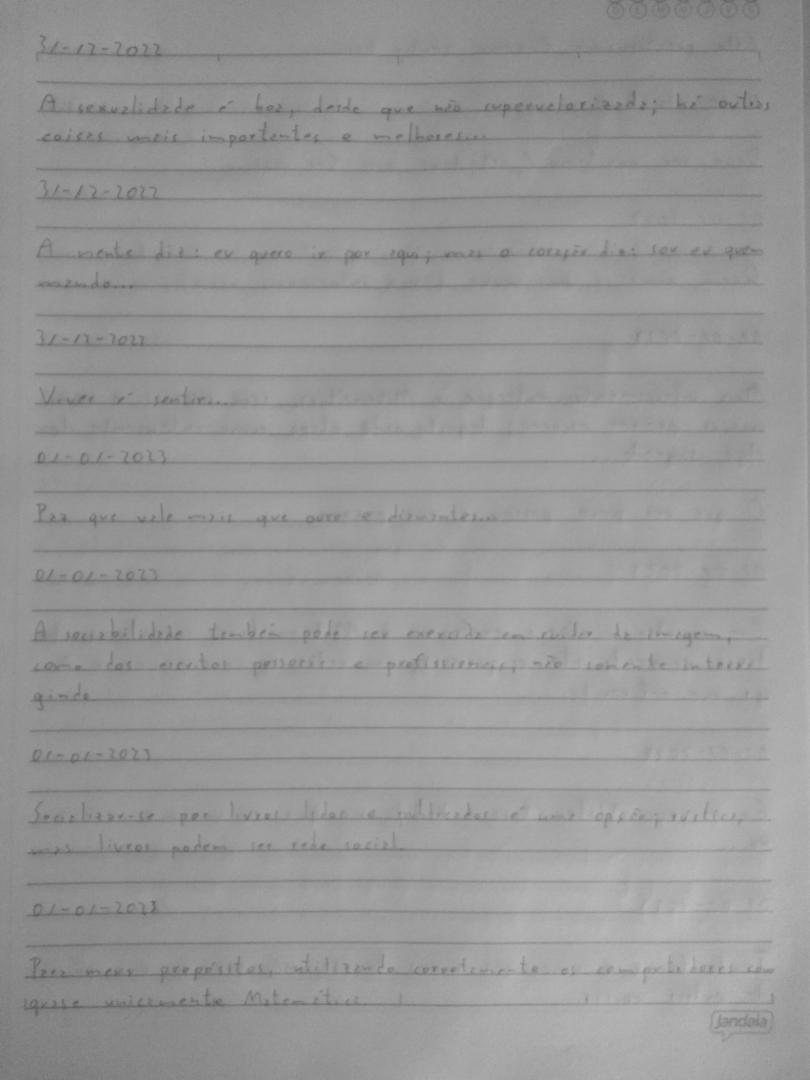 31-12-2022
A sexualidade é boa, desde que não supervalorizada; há outras
coisas mais importantes e melhores...
31-12-2022
A mente diz: eu quero ir por aqui; mas o coração diz: sou eu quem
mando...
31-12-2022
Viver é sentir...
01-01-2023
Paz que vale mais que ouro e diamantes...
01-01-2023
A sociabilidade também pode ser exercida em cuidar da imagem,
como dos escritos pessoais e profissionais, não somente intera
gindo
01-01-2023
Socializar-se por livros lidos e publicados é uma opção;
mas livros podem ser rede social.
01-01-2023
Para meus propósitos, utilizando corretamente os computadores com
quase unicamente Matemática.
Jandaia